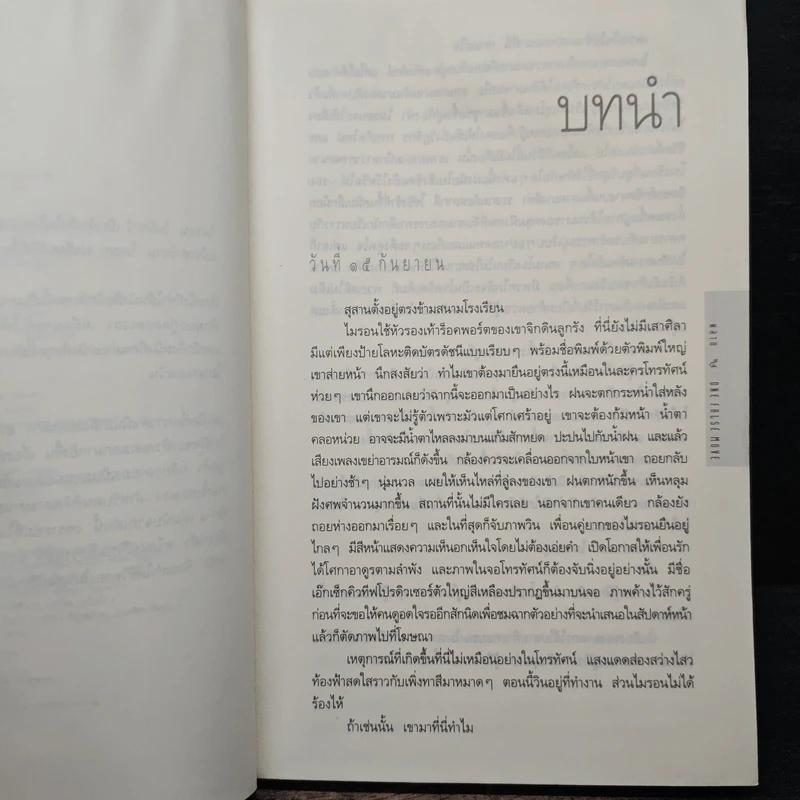 บทนำ
วันที่ ๑๕ กันยายน
สุสานตั้งอยู่ตรงข้ามสนามโรงเรียน
ไมรอนใช้หัวรองเท้าร็อคพอร์ตของเขาจิกดินลูกรัง ที่นี่ยังไม่มีเสาศิลา
มีแต่เพียงป้ายโลหะติดบัตรดัชนีแบบเรียบๆ พร้อมชื่อพิมพ์ด้วยตัวพิมพ์ใหญ่
เขาส่ายหน้า นึกสงสัยว่า ทำไมเขาต้องมายืนอยู่ตรงนี้เหมือนในละครโทรทัศน์
ห่วยๆ เขานึกออกเลยว่าฉากนี้จะออกมาเป็นอย่างไร ฝนจะตกกระหน่ำใส่หลัง
ของเขา แต่เขาจะไม่รู้ตัวเพราะมัวแต่โศกเศร้าอยู่ เขาจะต้องก้มหน้า น้ำตา
คลอหน่วย อาจจะมีน้ำตาไหลลงมาบนแก้มสักหยด ปะปนไปกับน้ำฝน และแล้ว
เสียงเพลงเขย่าอารมณ์ก็ดังขึ้น กล้องควรจะเคลื่อนออกจากใบหน้าเขา ถอยกลับ
ไปอย่างช้าๆ นุ่มนวล เผยให้เห็นไหล่ที่ลู่ลงของเขา ฝนตกหนักขึ้น เห็นหลุม
ฝังศพจำนวนมากขึ้น สถานที่นั้นไม่มีใครเลย นอกจากเขาคนเดียว กล้องยัง
ถอยห่างออกมาเรื่อยๆ และในที่สุดก็จับภาพวิน เพื่อนคู่ยากของไมรอนยืนอยู่
ไกลๆ มีสีหน้าแสดงความเห็นอกเห็นใจโดยไม่ต้องเอ่ยคำ เปิดโอกาสให้เพื่อนรัก
ได้โศกาอาดูรตามลำพัง และภาพในจอโทรทัศน์ก็ต้องจับนิ่งอยู่อย่างนั้น มีชื่อ
เอ๊กเซ็กคิวทีฟโปรดิวเซอร์ตัวใหญ่สีเหลืองปรากฏขึ้นมาบนจอ ภาพค้างไว้สักครู่
ก่อนที่จะขอให้คนดูอดใจรออีกสักนิดเพื่อชมฉากตัวอย่างที่จะนำเสนอในสัปดาห์หน้า
แล้วก็ตัดภาพไปที่โฆษณา
เหตุการณ์ที่เกิดขึ้นที่นี่ไม่เหมือนอย่างในโทรทัศน์ แสงแดดส่องสว่างไสว
ท้องฟ้าสดใสราวกับเพิ่งทาสีมาหมาดๆ ตอนนี้วินอยู่ที่ทำงาน ส่วนไมรอนไม่ได้
ร้องไห้
ถ้าเช่นนั้น เขามาที่นี่ทำไม
ONE FALSE MOVE